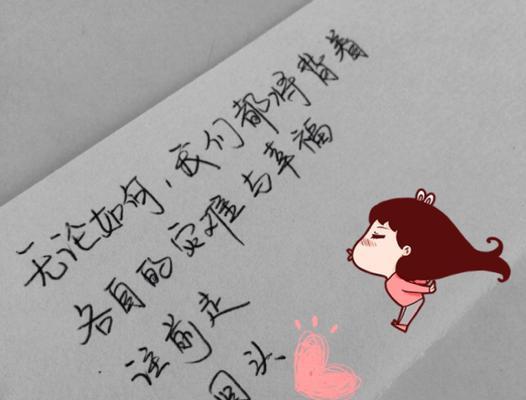 无论如何，我们都将背着
各自的灾难与幸福
往前走
回头